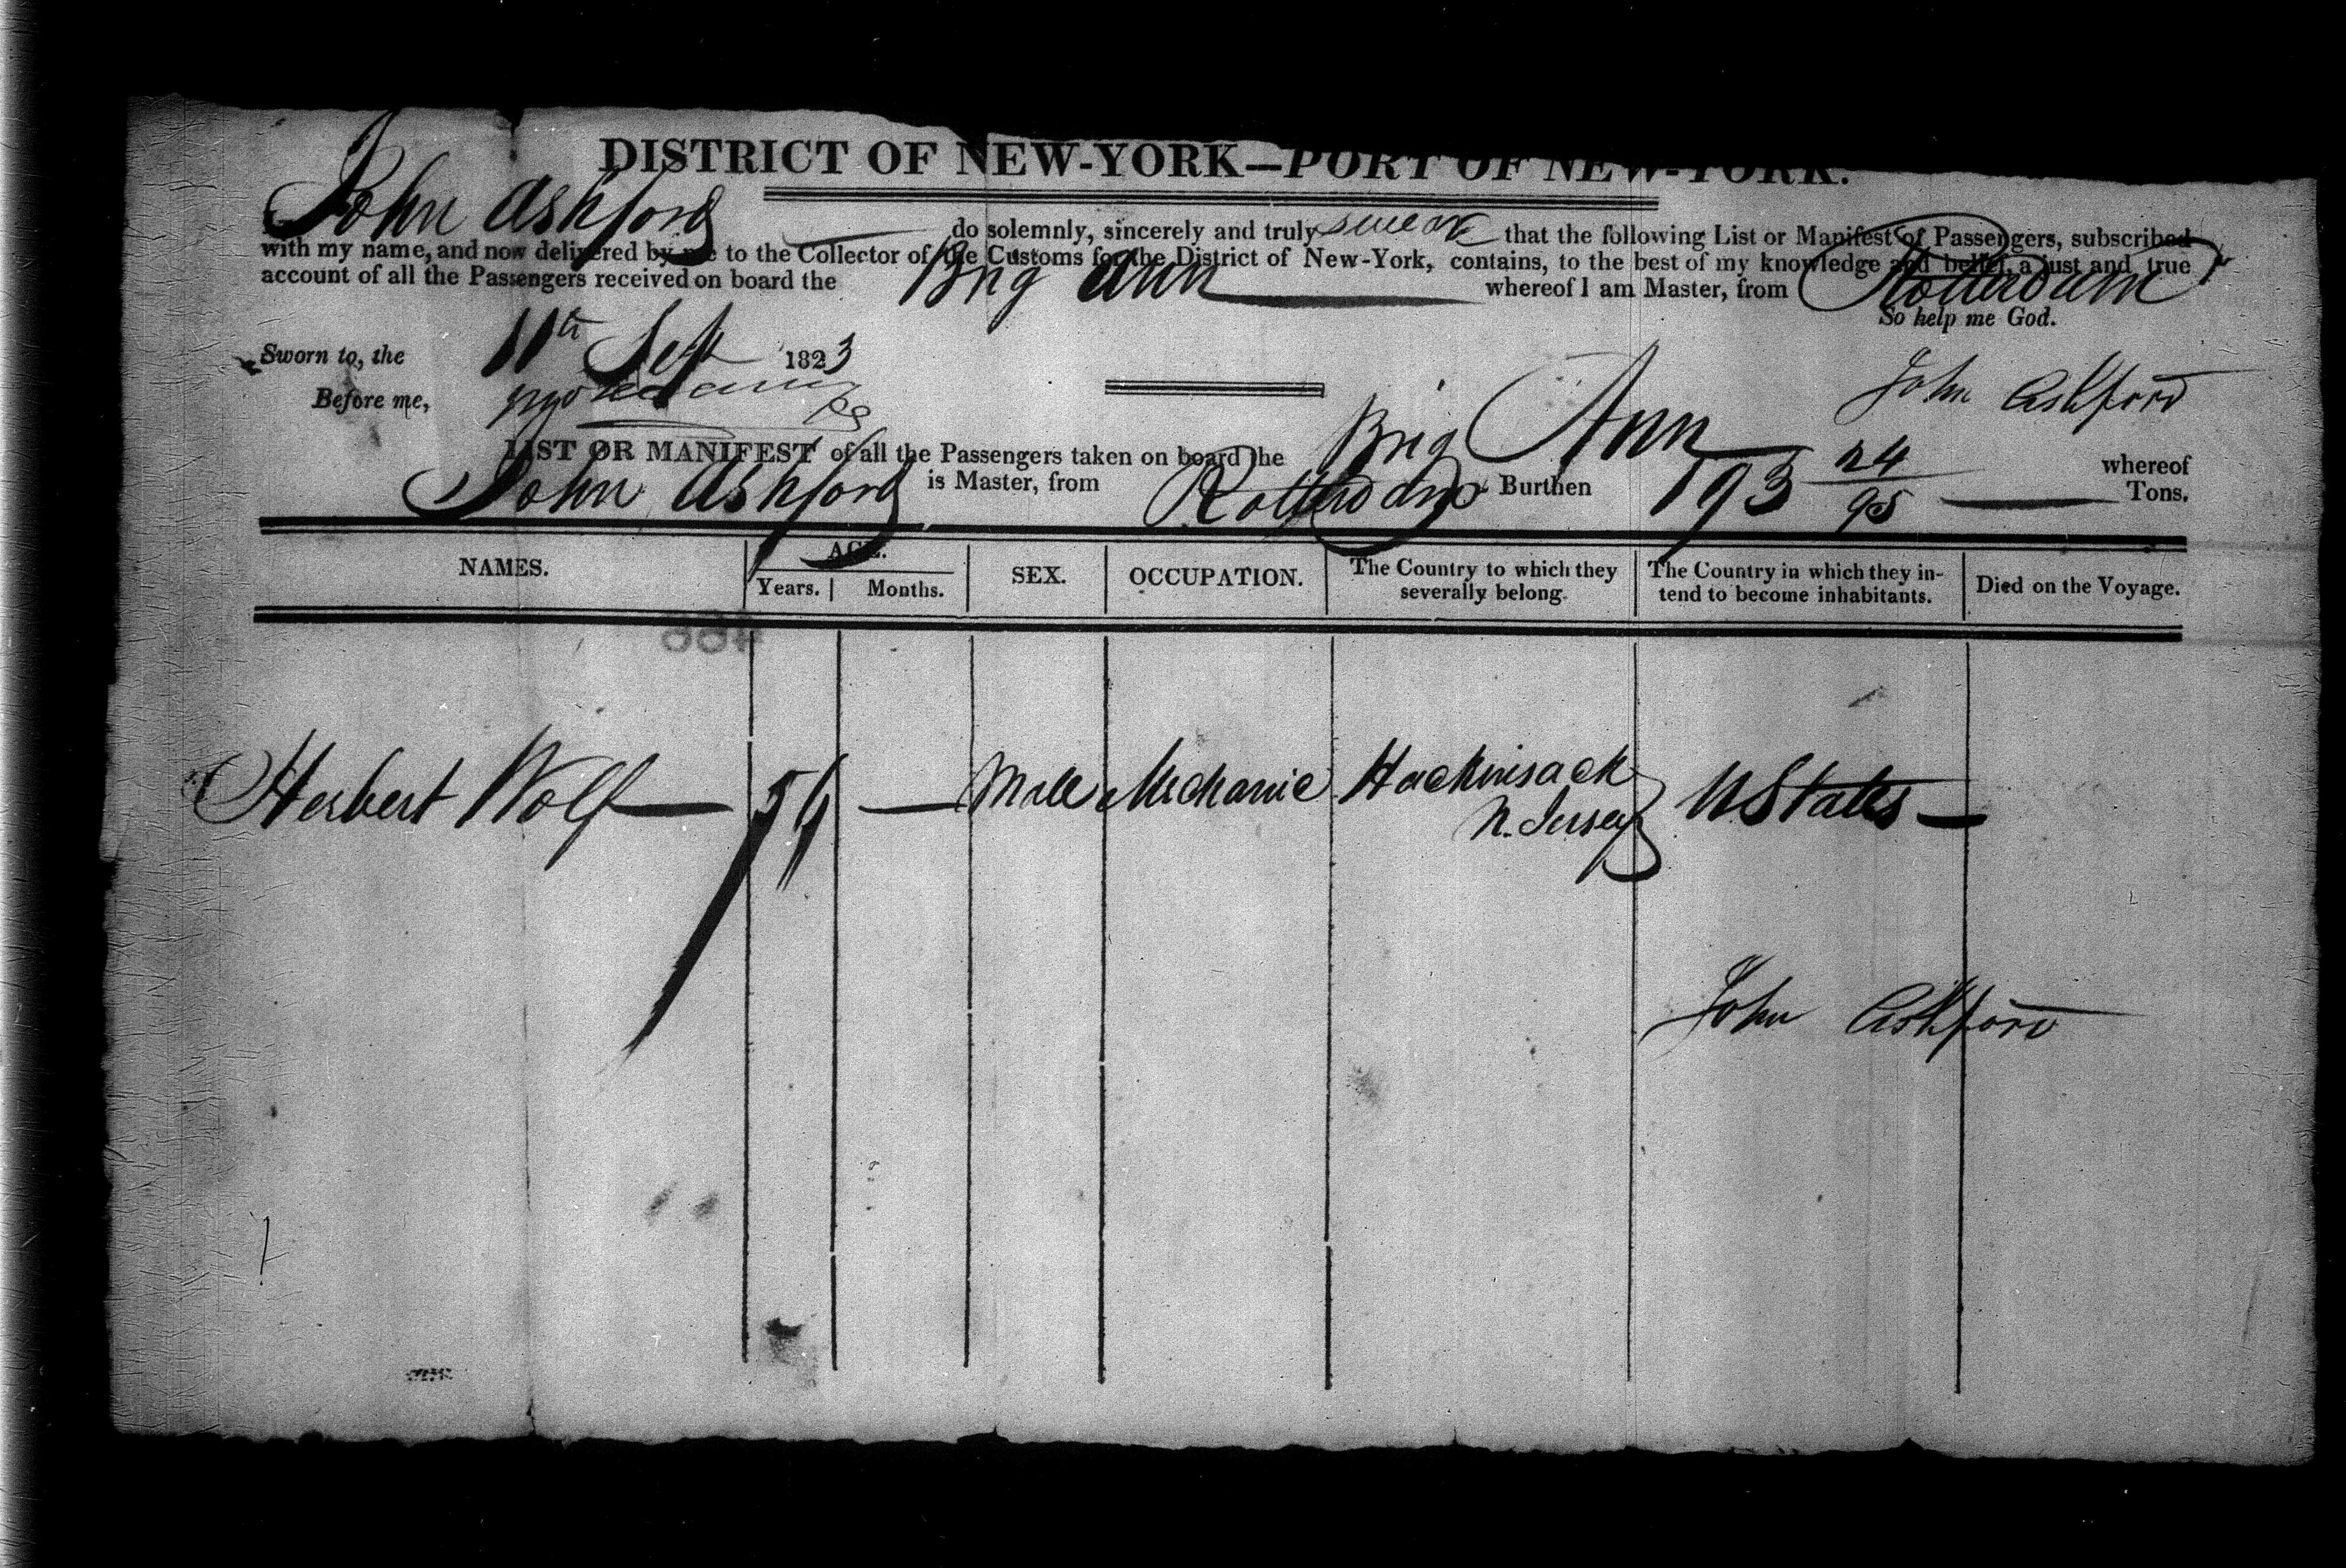 DISTRICT OF NEW-YORK—PORT OF NEW-YORK.
John Ashford do solemnly, sincerely and truly swear that the following List or Manifest of Passengers, subscribed
with my name, and now delivered by me to the Collector of the Customs for the District of New-York, contains, to the best of my knowledge and belief, a just and true
account of all the Passengers received on board the Brig Ann whereof I am Master, from Rotterdam
So help me God.
Sworn to, the 11th Sept 1823
Before me,
John Ashford
LIST OR MANIFEST of all the Passengers taken on board the Brig Ann whereof
John Ashford is Master, from Rotterdam Burthen 193 24/95 Tons.
NAMES. AGE. SEX. OCCUPATION. The Country to which they severally belong. The Country in which they intend to become inhabitants. Died on the Voyage.
Years. Months.
Herbert Wolf — — Male Mechanic Hackinsack U States —
N. Jersey
John Ashford